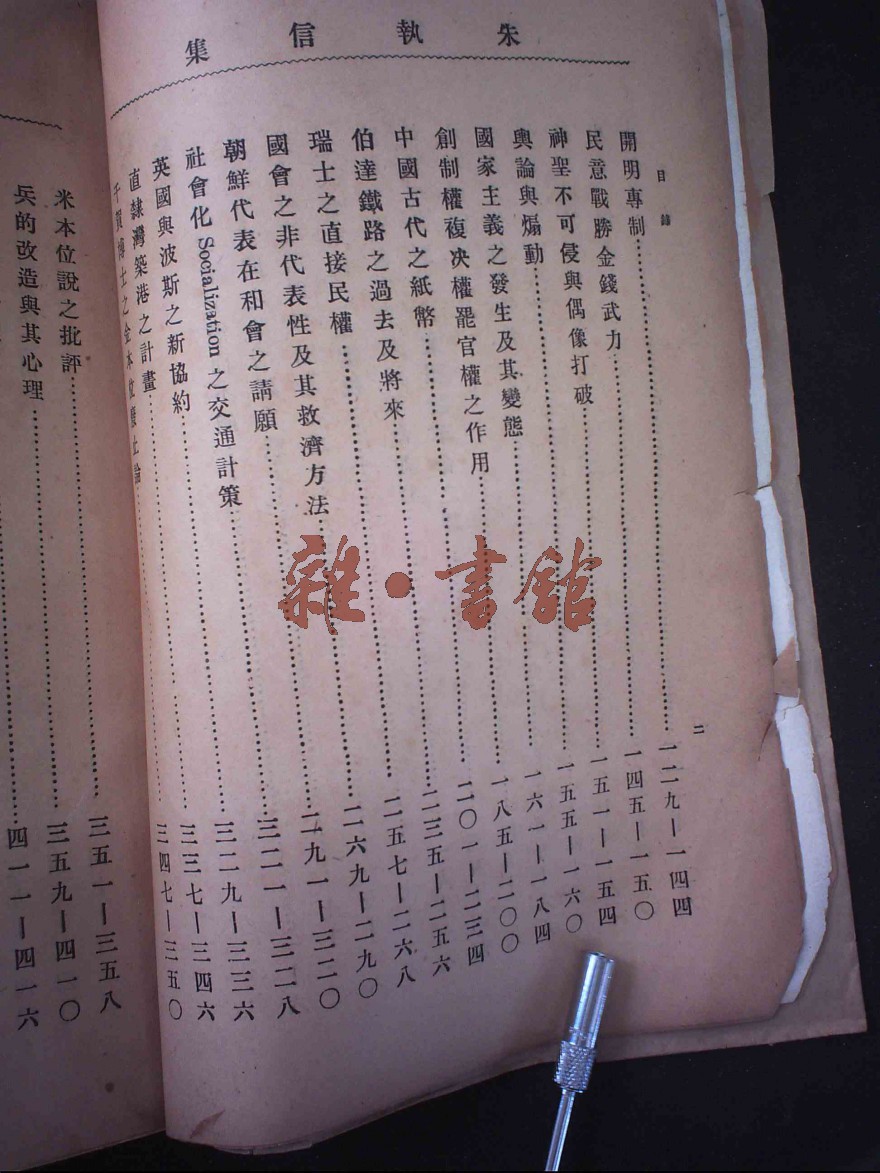 朱執信集
目錄 二
開明專制……一二九—一四四
民意戰勝金錢武力……一四五—一五〇
神聖不可侵與偶像打破……一五一—一五四
輿論與煽動……一五五—一六〇
國家主義之發生及其變態……一六一—一八四
創制權複決權罷官權之作用……一八五—二〇〇
中國古代之紙幣……二〇一—二三四
伯達鐵路之過去及將來……二三五—二五六
瑞士之直接民權……二五七—二六八
國會之非代表性及其救濟方法……二六九—二九〇
朝鮮代表在和會之請願……二九一—三二〇
社會化 Socialization 之交通計策……三二一—三二八
英國與波斯之新協約……三二九—三三六
直隸灣築港之計畫……三三七—三四六
千賀博士之金本位廢止論……三四七—三五〇
米本位說之批評……三五一—三五八
兵的改造與其心理……三五九—四一〇
……四一一—四一六
雜·書館